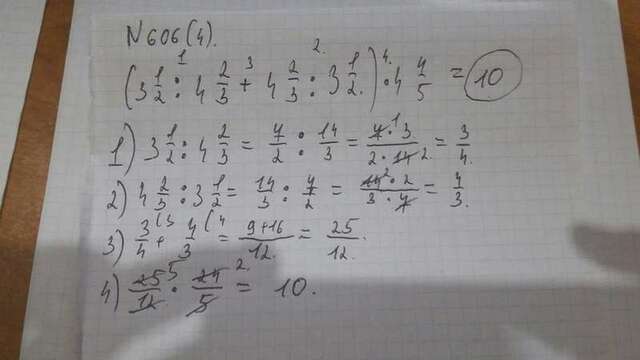 N 606(4).
(3 1/2 : 4 2/3 + 4 2/3 : 3 1/2) · 4 4/5 = 10
1) 3 1/2 : 4 2/3 = 7/2 : 14/3 = 7·3/2·14 = 3/4.
2) 4 2/3 : 3 1/2 = 14/3 : 7/2 = 14·2/3·7 = 4/3.
3) 3/4 + 4/3 = 9+16/12 = 25/12.
4) 25/12 · 24/5 = 10.